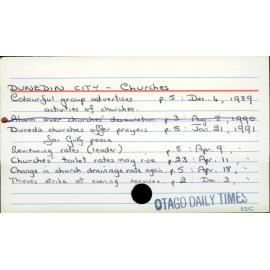 DUNEDIN CITY - Churches
Colourful group advertises p.5 : Dec. 4, 1989
activities of churches.
Alarm over churches' desecration p.3 : Aug. 8, 1990
Dunedin churches offer prayers p.5 : Jan. 21, 1991
for Gulf peace
Reviewing rates (leader) p.8 : Apr. 9, "
Churches' toilet rates may rise p.23 : Apr. 11, "
Change in church drainage rate again p.5 : Apr. 18, "
Thieves strike at evening services p.2 Dec 3, "
OTAGO DAILY TIMES